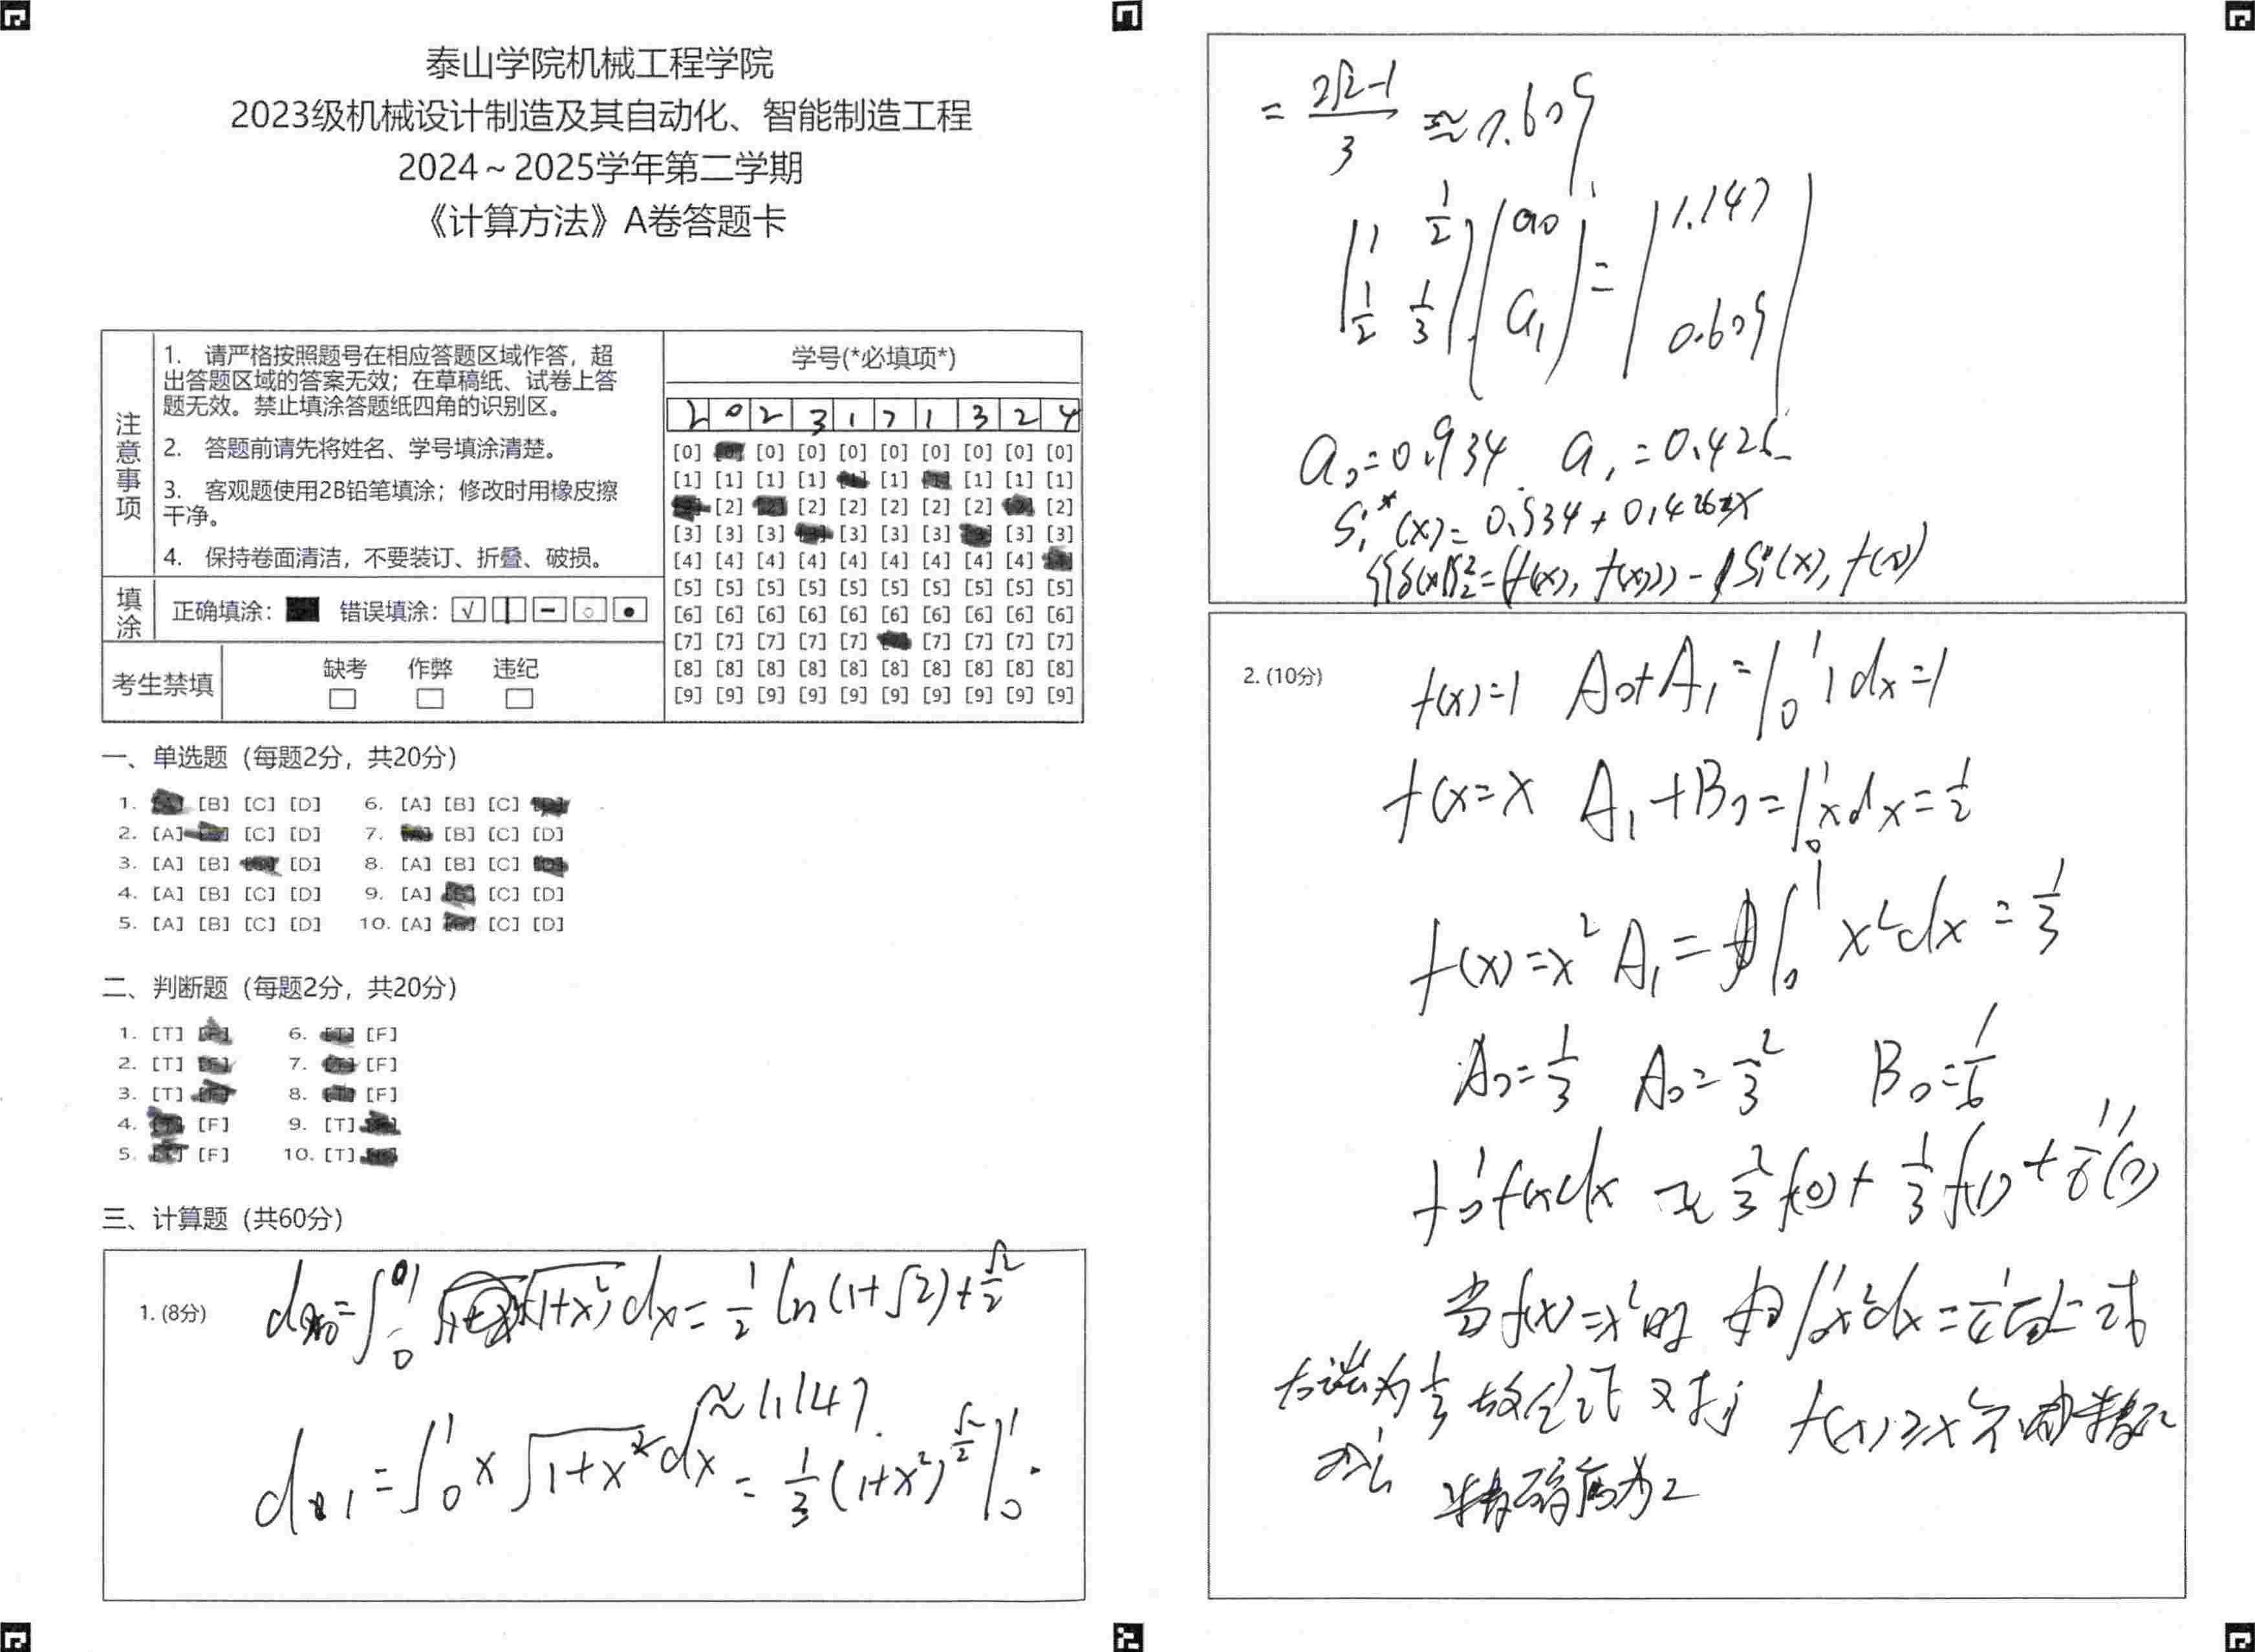 泰山学院机械工程学院
2023级机械设计制造及其自动化、智能制造工程
2024～2025学年第二学期
《计算方法》A卷答题卡
注意事项
1. 请严格按照题号在相应答题区域作答，超
出答题区域的答案无效；在草稿纸、试卷上答
题无效。禁止填涂答题纸四角的识别区。
2. 答题前请先将姓名、学号填涂清楚。
3. 客观题使用2B铅笔填涂；修改时用橡皮擦
干净。
4. 保持卷面清洁，不要装订、折叠、破损。
填涂
正确填涂： 错误填涂：
考生禁填
缺考 作弊 违纪
学号(*必填项*)
2 0 2 3 1 7 1 3 2 4
[0] [0] [0] [0] [0] [0] [0] [0] [0]
[1] [1] [1] [1] [1] [1] [1] [1]
[2] [2] [2] [2] [2] [2] [2]
[3] [3] [3] [3] [3] [3] [3] [3]
[4] [4] [4] [4] [4] [4] [4] [4] [4]
[5] [5] [5] [5] [5] [5] [5] [5] [5] [5]
[6] [6] [6] [6] [6] [6] [6] [6] [6] [6]
[7] [7] [7] [7] [7] [7] [7] [7] [7]
[8] [8] [8] [8] [8] [8] [8] [8] [8] [8]
[9] [9] [9] [9] [9] [9] [9] [9] [9] [9]
一、单选题（每题2分，共20分）
1. [B] [C] [D] 6. [A] [B] [C]
2. [A] [C] [D] 7. [B] [C] [D]
3. [A] [B] [D] 8. [A] [B] [C]
4. [A] [B] [C] [D] 9. [A] [C] [D]
5. [A] [B] [C] [D] 10. [A] [C] [D]
二、判断题（每题2分，共20分）
1. [T] 6. [F]
2. [T] 7. [F]
3. [T] 8. [F]
4. [F] 9. [T]
5. [F] 10. [T]
三、计算题（共60分）
1. (8分)
√(1+x²) dx = 1/2 ln(1+√2) + √2/2
≈1.147
= ∫₀¹ x √(1+x²) dx = 1/3 (1+x²)
= (2√2-1)/3 ≈ 0.609
(1 1/2; 1/2 1/3) (a₀; a₁) = (1.147; 0.609)
a₀=0.934 a₁=0.426
S₁*(x)= 0.934+0.426x
2. (10分)
f(x)=1 A₀+A₁=∫₀¹ 1 dx=1
f(x=x A₁+B₀=∫₀¹ x dx=1/2
f(x)=x² A₁=∫₀¹ x² dx=1/3
A₀=1/3 A₀=2/3 B₀=1/6
≈ 2/3 f(0)+ 1/3 f(1)+
当f(x)=x²时
精确度为2